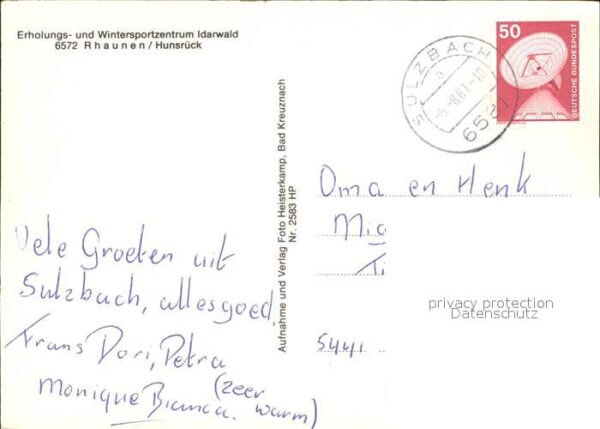 Erholungs- und Wintersportzentrum Idarwald
6572 Rhaunen / Hunsrück
Vele Groeten uit
Sulzbach, alles goed,
Frans Dori, Petra
Monique Bianca. (zeer
warm)
Aufnahme und Verlag Foto Heisterkamp, Bad Kreuznach
Nr. 2583 HP
SULZBACH
a
-8.81-18
50
DEUTSCHE BUNDESPOST
Oma en Henk
privacy protection
Datenschutz